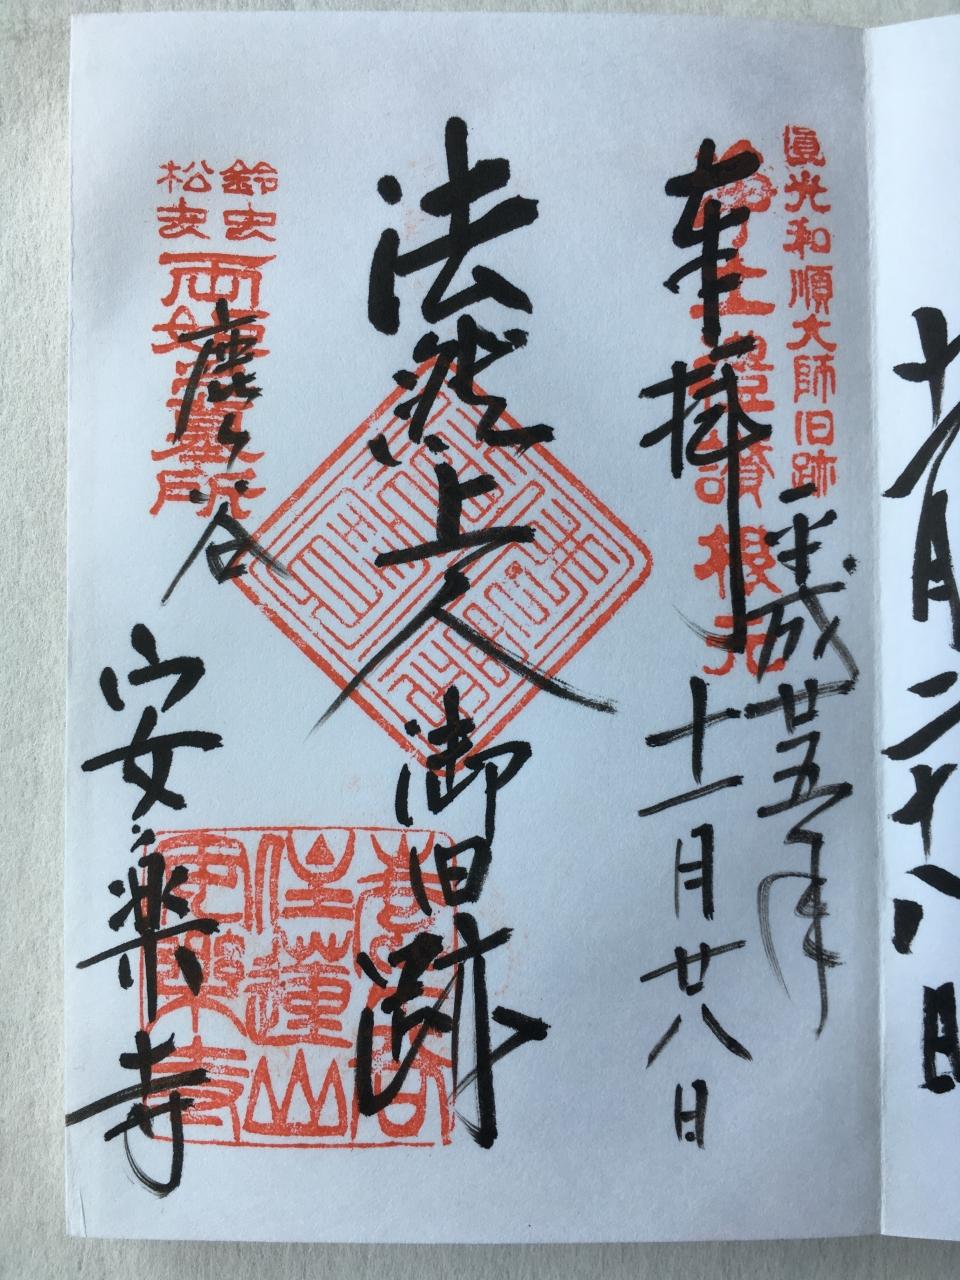 十月二十八日
圓光和順大師旧跡
奉拝
平成廿五年
十一月廿八日
法然上人御旧跡
鈴虫
松虫
両姫
墓所
鹿ヶ谷
安楽寺
住蓮山
安楽寺